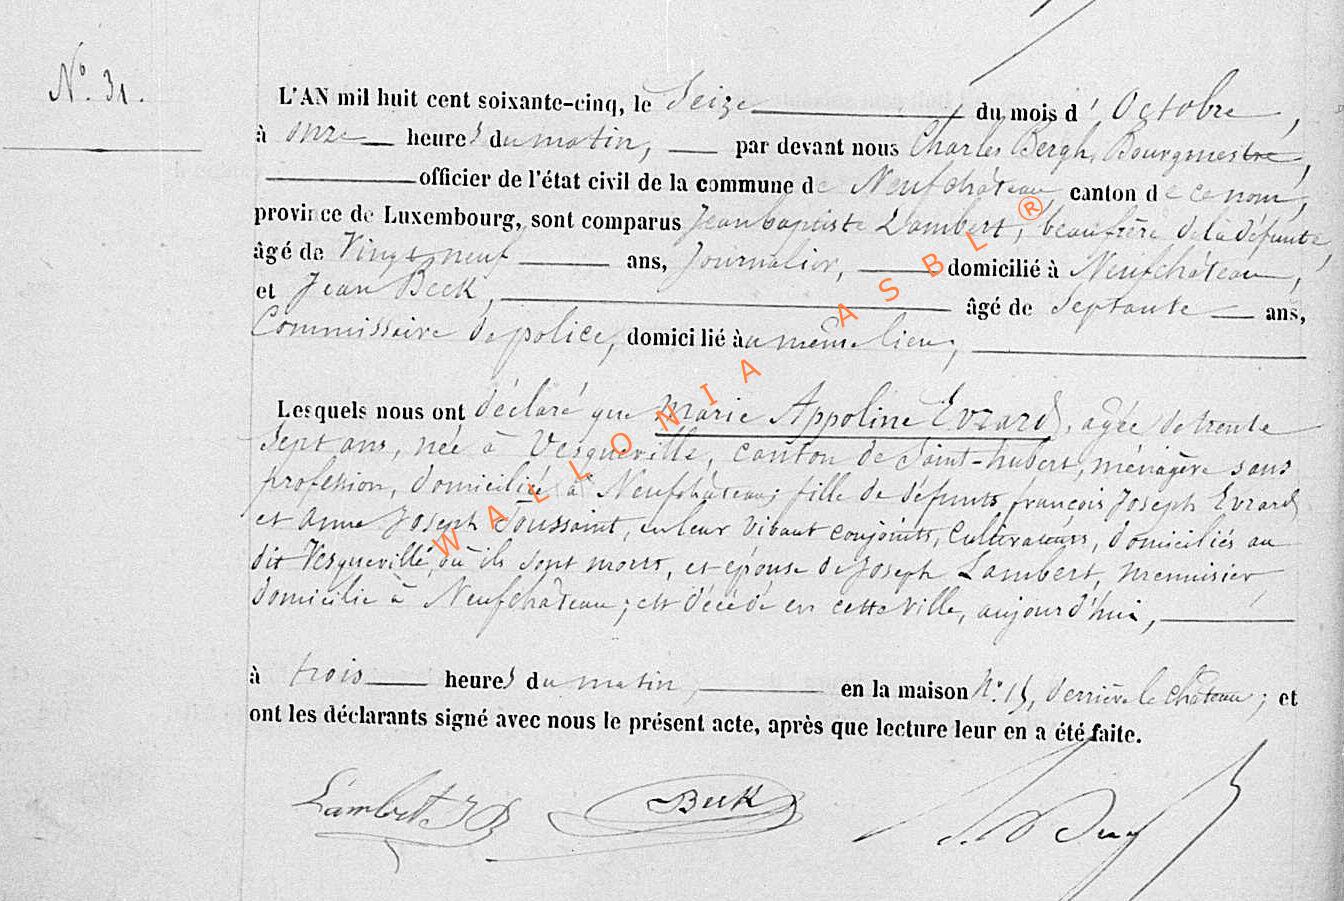 N° 31.
L'AN mil huit cent soixante-cinq, le Seize du mois d' Octobre,
à onze heures du matin, par devant nous Charles Bergh, Bourgmestre,
officier de l'état civil de la commune de Neufchâteau, canton de ce nom,
province de Luxembourg, sont comparus Jean baptiste Lambert, beaufrère de la défunte,
âgé de Vingt neuf ans, Journalier, domicilié à Neufchâteau,
et Jean Beck, âgé de septante ans,
Commissaire de police, domicilié au même lieu,
Lesquels nous ont déclaré que Marie Appoline Evrard, agée de trente
sept ans, née à Vesqueville, canton de Saint-hubert, ménagère sans
profession, domiciliée à Neufchâteau, fille de défunts françois Joseph Evrard
et Anne Joseph Toussaint, en leur vivant conjoints, Cultivateurs, domiciliés au
dit Vesqueville, où ils sont morts, et épouse de Joseph Lambert, menuisier
domicilié à Neufchâteau; est décédé en cette ville, aujourd'hui,
à trois heures du matin, en la maison N° 15, derrière le château; et
ont les déclarants signé avec nous le présent acte, après que lecture leur en a été faite.
Lambert JB Beck
WALLONIA ASBL ®